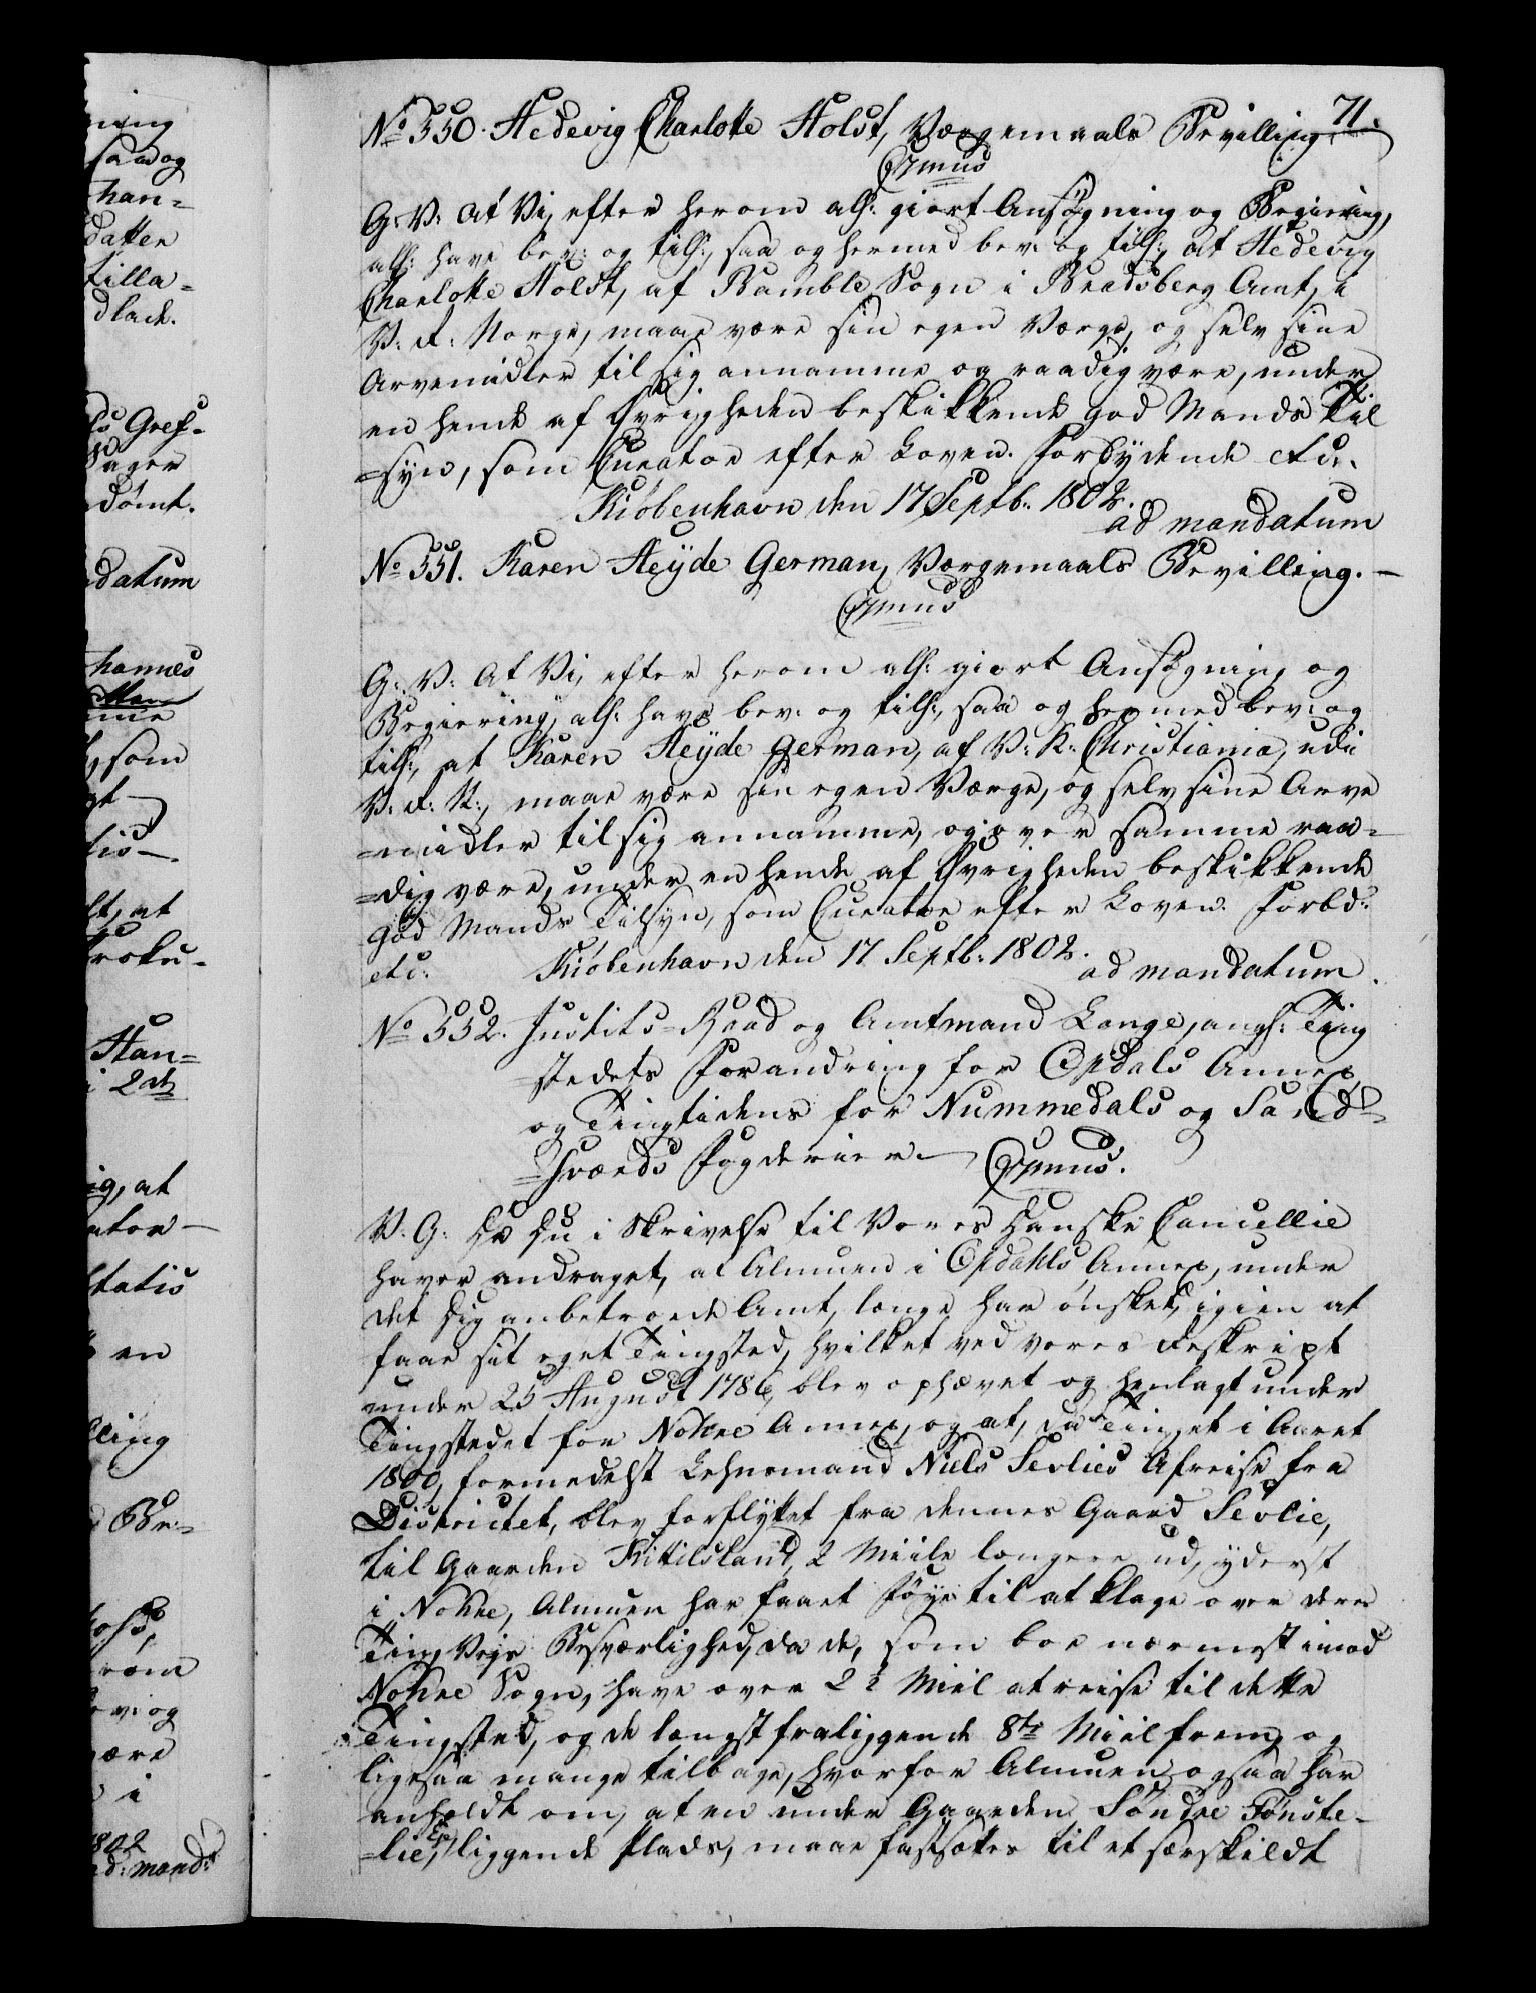 ning
saa og
han-
datter
tilla-
dlade.
ds Gref-
Sager
dømt.
datum
hannes
som
tis-
lt, at
roku-
Han-
i 2de
ig, at
ator -
tatis
en
ling
Be-
rom
ev: og
være
i
1802
ad: mand:
71.
No 550. Hedevig Charlotte Holst, Værgemaals Bevilling.
Crmus
G: V: At Vi, efter herom alh: giort Ansøgning og Begiering,
alh: have bev: og tilh:, saa og hermed bev: og tilh:, at Hedevig
Charlotte Holst, af Bamble Sogn i Bradsberg Amt, i
V: R: Norge, maae være sin egen Værge, og selv sine
Arvemidler til sig annamme og raadig være, under
en hende af Øvrigheden beskikkende god Mands Til
=syn, som Curator efter Loven. Forbydende etc:.
Kiøbenhavn den 17 Septb: 1802.
ad mandatum
No 551. Karen Heÿde German, Værgemaals Bevilling. -
Crmus
G: V: At Vi, efter herom alh: giort Ansøgning og
Begiering, alh: have bev: og tilh:, saa og hermed bev: og
tilh:, at Karen Heÿde German, af V: K: Christiania, udi
V: R: N:, maae være sin egen Værge, og selv sine Arve
=midler til sig annamme, og over samme raa=
=dig være, under en hende af Øvrigheden beskikkende
god Mands Tilsyn, som Curator efter Loven. Forbd:
etc: Kiøbenhavn den 17 Septb: 1802.
ad mandatum.
No 552. Justits-Raad og Amtmand Lange, angh: Ting
=stedets Forandring for Opdals Annex,
og Tingtidens for Nummedals og Sand=
=sværds Fogderier - Crmus.
V: G: Da Du i Skrivelse til Vores Danske Cancellie
haver andraget, at Almuen i Opdahls Annex, under
det Dig anbetroede Amt, længe har ønsket, igien at
faae sit eget Tingsted, hvilket ved vores Reskript
under 25 August 1786, blev ophævet og henlagt under
Tingstedet for Nohre Annex, og at, da Tinget i Aaret
1800, formedelst Lehnsmand Niels Sevlies Afreise fra
Districtet, blev forflyttet fra dennes Gaard Sevlie,
til Gaarden Kittilsland, 2 Miile længere ud, yderst
i Nohre, Almuen har faaet Føye til at klage over deres
Ting Veys Besværlighed, da de, som boe nærmest imod
Nohre Sogn, have over 2 1/2 Miil at reise til dette
Tingsted, og de længst fraliggende 8te Miil frem, og
ligesaa mange tilbage, hvorfor Almuen ogsaa har
anholdt om, at en under Gaarden Søndre Fønste-
=lie, liggende Plads, maae fastsættes til et særskildt